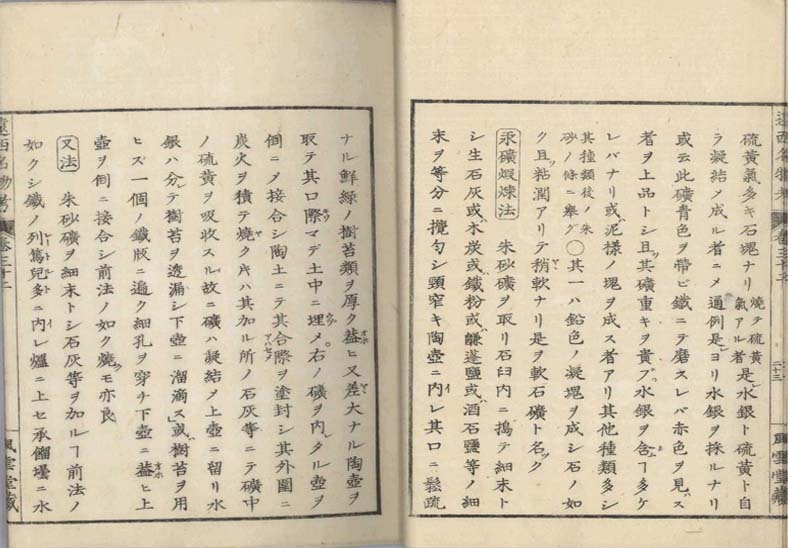 遠西名物考 卷三十二 二十三 風雲堂藏
硫黃氣多キ石塊ナリ 燒テ硫黃氣アル者 是レ水銀ト硫黃ト自
ラ凝結メ成ル者ニメ通例是ヨリ水銀ヲ採ルナリ
或云此礦青色ヲ帶ビ鐵ニテ磨スレバ赤色ヲ見ス
者ヲ上品トシ且其礦重キヲ貴ブ水銀ヲ含ヿ多ケ
レバナリ或泥樣ノ塊ヲ成ス者アリ其他種類多シ
其種類後ノ朱砂ノ條ニ擧グ 〇其一ハ鉛色ノ凝塊ヲ成シ石ノ如
ク且ツ粘潤アリテ稍軟ナリ是ヲ軟石礦ト名ツク
汞礦煆煉法 朱砂礦ヲ取リ石臼内ニ搗テ細末ト
シ生石灰或ハ木炭或ハ鐵粉或ハ鹻蓬鹽或ハ酒石鹽等ノ細
末ヲ等分ニ攪勻シ頸窄キ陶壺ニ内レ其口ニ鬆疏
ナル鮮綠ノ樹苔類ヲ厚ク葢ヒ又差大ナル陶壺ヲ
取テ其口際マデ土中ニ埋メ右ノ礦ヲ内タル壺ヲ
倒ニメ接合シ陶土ニテ其合際ヲ塗封シ其外圍ニ
炭火ヲ積テ燒ク片ハ其加ル所ノ石灰等ニテ礦中
ノ硫黃ヲ吸收スル故ニ礦ハ凝結メ上壺ニ留リ水
銀ハ分レテ樹苔ヲ透漏シ下壺ニ溜滴ス或ハ樹苔ヲ用
ヒズ一個ノ鐵版ニ遍ク細孔ヲ穿チ下壺ニ葢ヒ上
壺ヲ倒ニ接合シ前法ノ如ク燒クモ亦良
又法 朱砂礦ヲ細末トシ石灰等ヲ加ルヿ前法ノ
如クシ鐵ノ列篤兒多ニ内レ爐ニ上セ承餾壜ニ水
遠西名物考 卷三十二 風雲堂藏